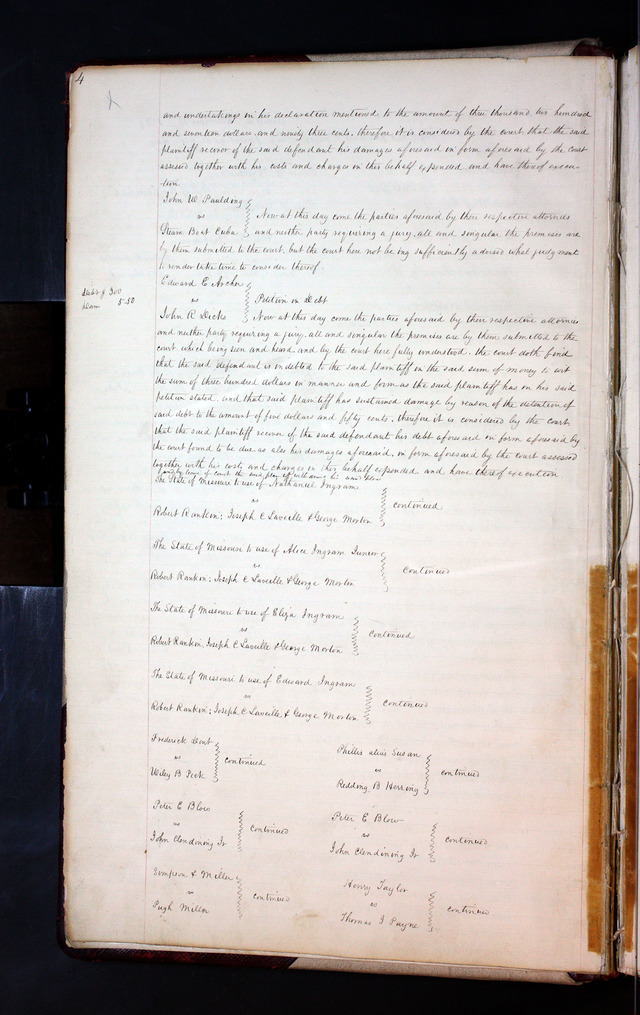 4
and undertakings in his declaration mentioned to the amount of three thousand two hundred
and seventeen dollars and ninety three cents, therefore it is considered by the court that the said
plaintiff recover of the said defendant his damages aforesaid in form aforesaid by the Court
assessed together with his costs and charges in this behalf expended and have thereof execu-
tion
John W Paulding
vs
Steam Boat Cuba
Now at this day come the parties aforesaid by their respective attornies
and neither party requiring a jury, all and singular the premises are
by them submitted to the court, but the court here not being sufficiently advised what judgment
to render take time to consider thereof
Debt $ 300
Dam 5.50
Edward E Archer
vs
John R Dicks
Petition in Debt
Now at this day come the parties aforesaid by their respective attornies
and neither party requiring a jury, all and singular the premises are by them submitted to the
court which being seen and heard and by the court here fully understood, the court doth find
that the said defendant is indebted to the said plaintiff in the said sum of money to wit
the sum of three hundred dollars in manner and form as the said plaintiff has in his said
petition stated, and that said plaintiff has sustained damage by reason of the detention of
said debt to the amount of five dollars and fifty cents, therefore it is considered by the court
that the said plaintiff recover of the said defendant his debt aforesaid in form aforesaid by
the court found to be due as also his damages aforesaid, in form aforesaid by the court assessed
together with his costs and charges in this behalf expended and have thereof execution
and by leave of court the said plaintiff withdraws his
The State of Missouri to use of Nathaniel Ingram
vs
Robert Rankin; Joseph C Laveille & George Morton
continued
The State of Missouri to use of Alice Ingram Junior
vs
Robert Rankin; Joseph C Laveille & George Morton
Continued
The State of Missouri to use of Eliza Ingram
vs
Robert Rankin, Joseph C Laveille & George Morton
continued
The State of Missouri to use of Edward Ingram
vs
Robert Rankin; Joseph C Laveille & George Morton
continued
Frederick Dent
vs
Wiley B Peck
continued
Phillis alias Susan
vs
Redding B Herring
continued
Peter E Blow
vs
John Clendining Jr
continued
Peter E Blow
vs
John Clendining Jr
continued
Simpson & Miller
vs
Pugh Miller
continued
Henry Taylor
vs
Thomas J Payne
continued